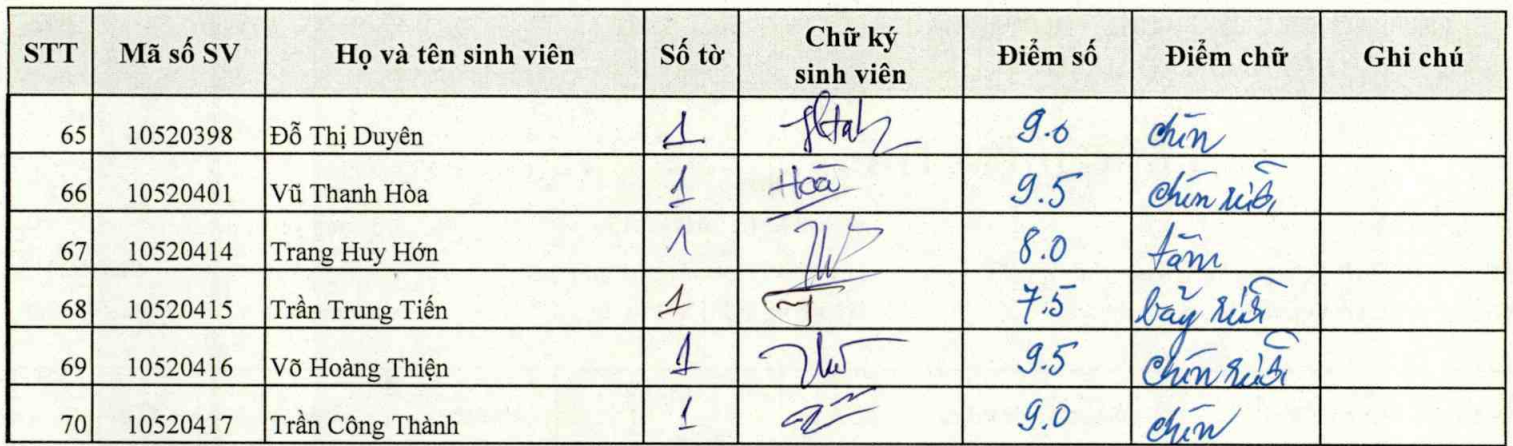 STT Mã số SV Họ và tên sinh viên Số tờ Chữ ký sinh viên Điểm số Điểm chữ Ghi chú
65 10520398 Đỗ Thị Duyên 1 9.0 chín
66 10520401 Vũ Thanh Hòa 1 Hòa 9.5 chín rưỡi
67 10520414 Trang Huy Hớn 1 8.0 tám
68 10520415 Trần Trung Tiến 1 7.5 bảy rưỡi
69 10520416 Võ Hoàng Thiện 1 9.5 chín rưỡi
70 10520417 Trần Công Thành 1 9.0 chín